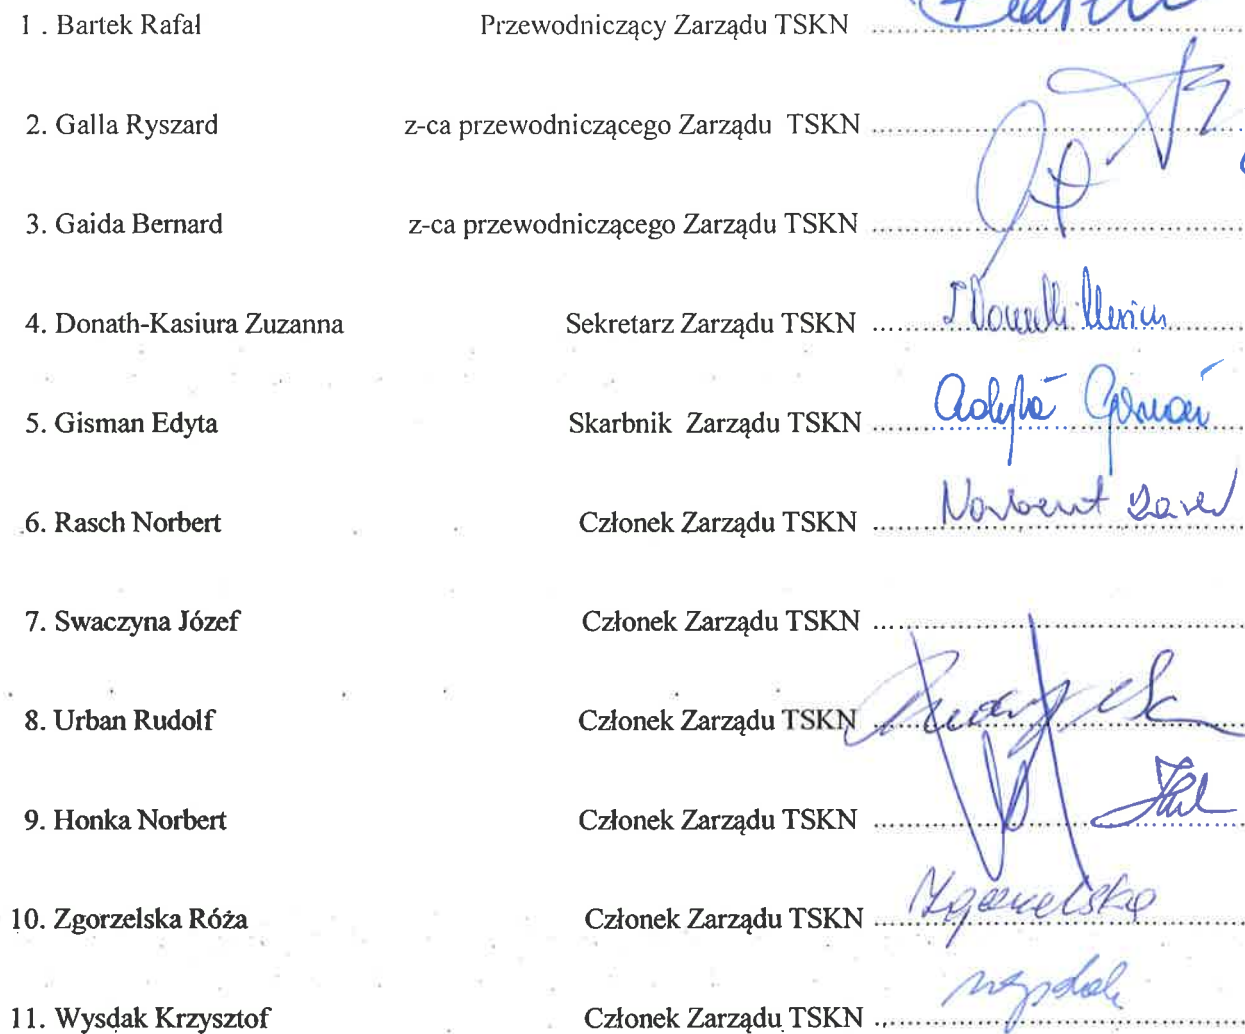 1 . Bartek Rafał Przewodniczący Zarządu TSKN ........................
2. Galla Ryszard z-ca przewodniczącego Zarządu TSKN ........................
3. Gaida Bernard z-ca przewodniczącego Zarządu TSKN ........................
4. Donath-Kasiura Zuzanna Sekretarz Zarządu TSKN ........................
5. Gisman Edyta Skarbnik Zarządu TSKN ........................
6. Rasch Norbert Członek Zarządu TSKN ........................ Norbert
7. Swaczyna Józef Członek Zarządu TSKN ........................
8. Urban Rudolf Członek Zarządu TSKN ........................
9. Honka Norbert Członek Zarządu TSKN ........................
10. Zgorzelska Róża Członek Zarządu TSKN ........................ Zgorzelska
11. Wysdak Krzysztof Członek Zarządu TSKN ........................